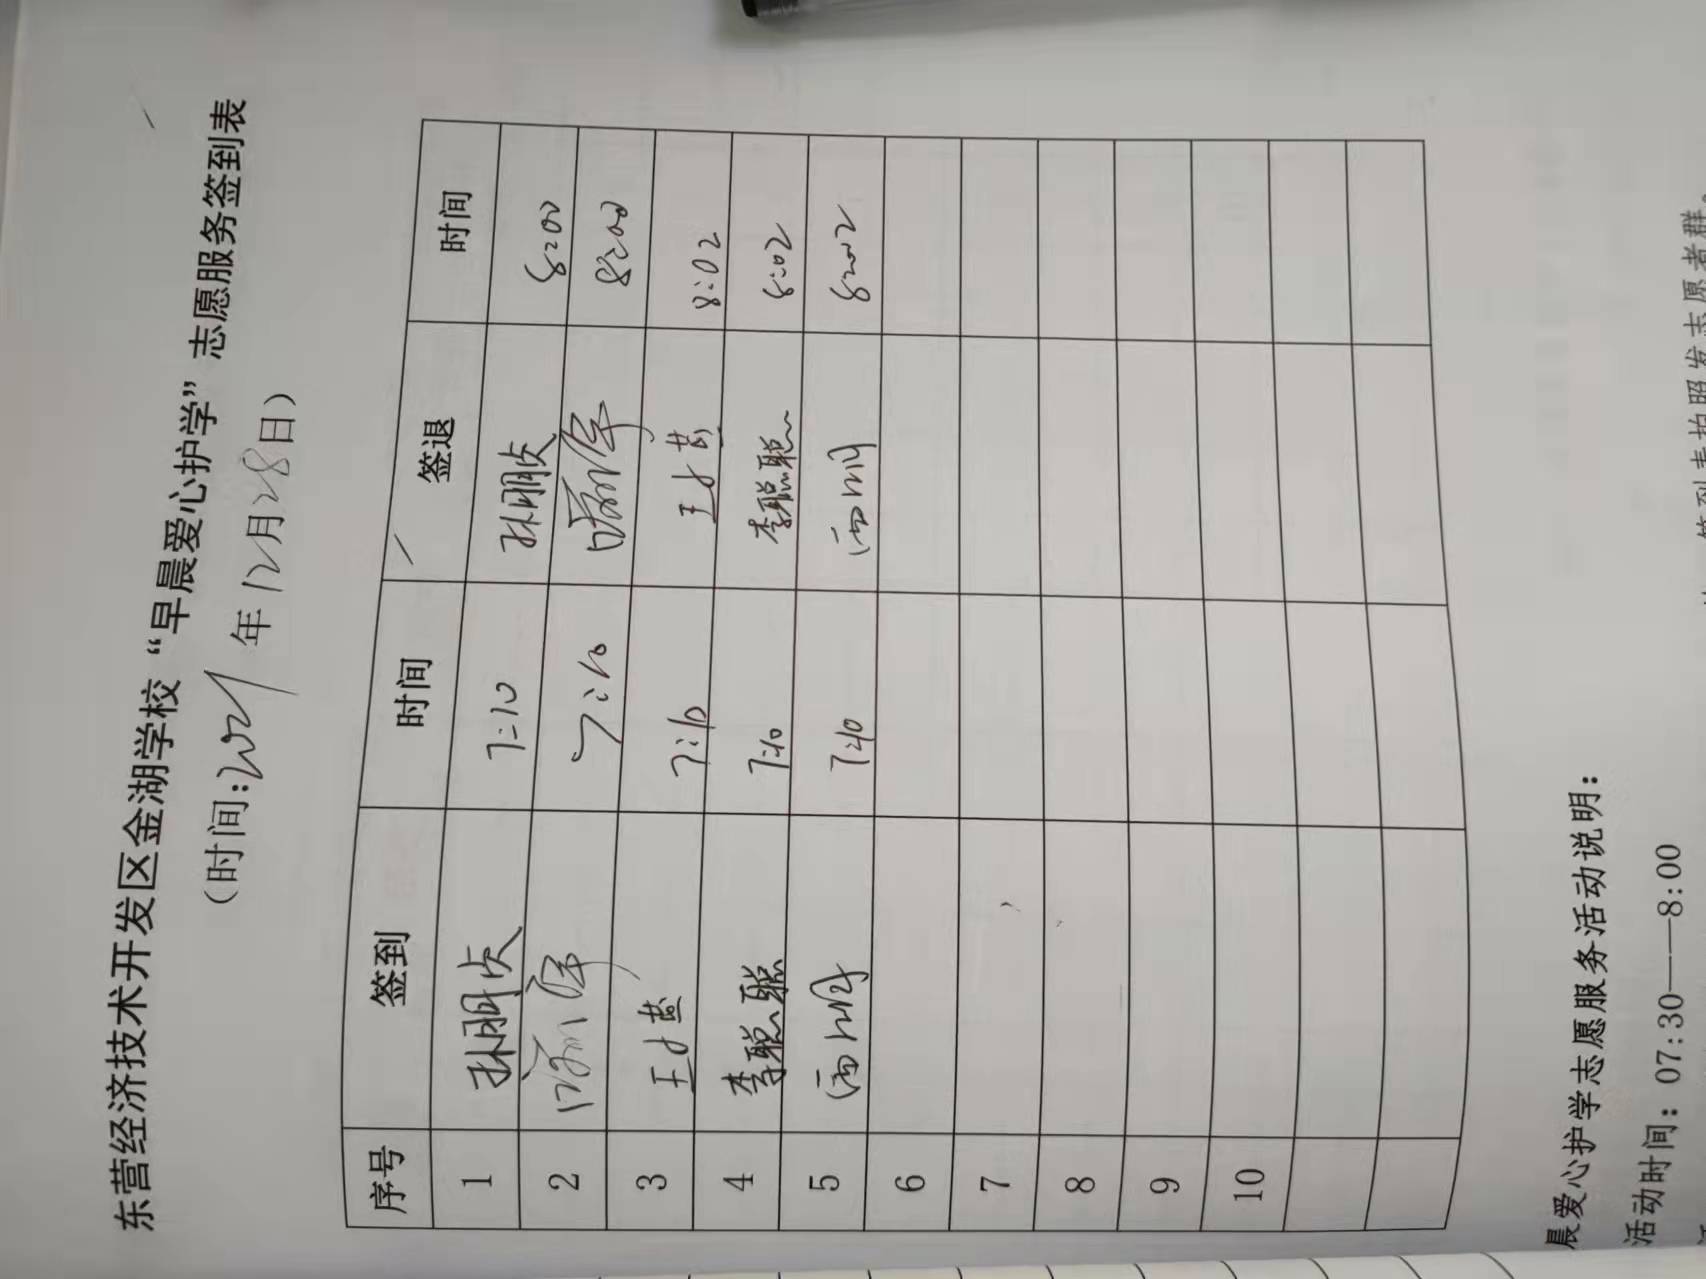 东营经济技术开发区金湖学校“早晨爱心护学”志愿服务签到表
(时间:2021年12月28日)
序号 签到 时间 签退 时间
1 7:10 8:00
2 7:10 8:00
3 7:10 8:02
4 李聪聪 7:10 李聪聪 8:02
5 7:10 8:02
6
7
8
9
10
晨爱心护学志愿服务活动说明:
活动时间:07:30——8:00
签到表拍照发志愿者群。